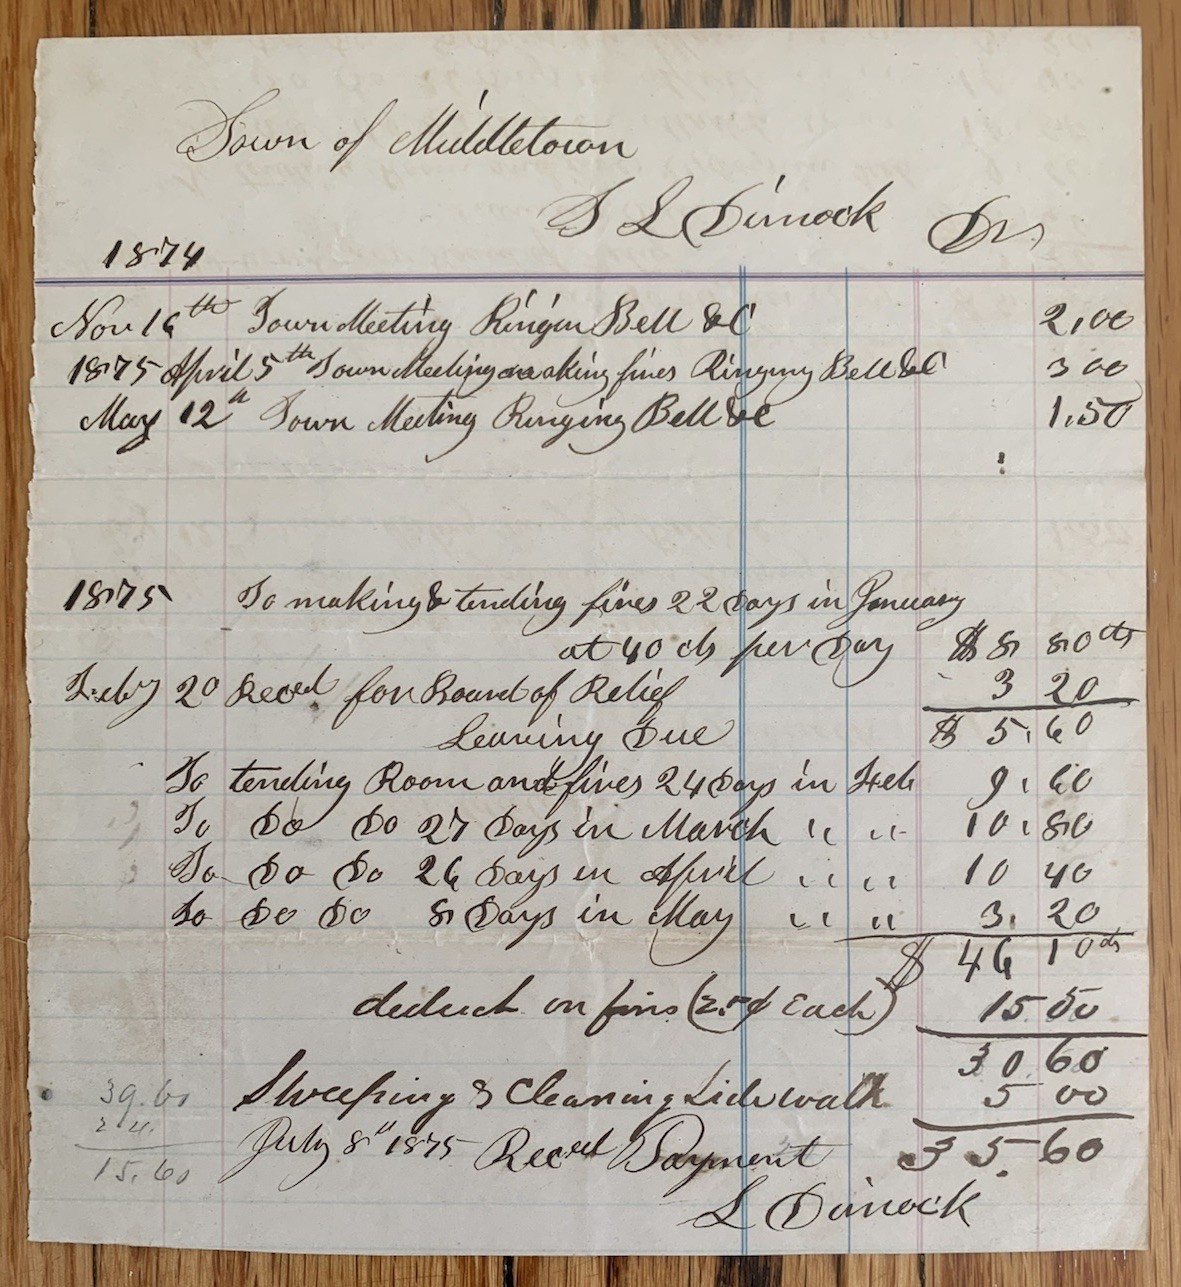 Town of Middletown
To L Dimock Dr.
1874
Nov 16th Town Meeting Ringin Bell &C 2,00
1875 April 5th Town Meeting making fires Ringing Bell &C 3 00
May 12th Town Meeting Ringing Bell &C 1.50
1875 To making & tending fires 22 Days in January
at 40 cts per Day $8 80cts
Feby 20 Reced for Board of Relief 3 20
Leaving Due $ 5.60
To tending Room and fires 24 Days in Feb 9.60
To Do Do 27 Days in March " " 10.80
To Do Do 26 Days in April " " 10 40
To Do Do 8 Days in May " " 3. 20
$ 46 10cts
deduct on fires (25¢ Each) 15 50
30 60
Sweeping & Cleaning Sidewalk 5 00
July 8th 1875 Reced Payment 35.60
L Dimock
39.60
24.
15.60